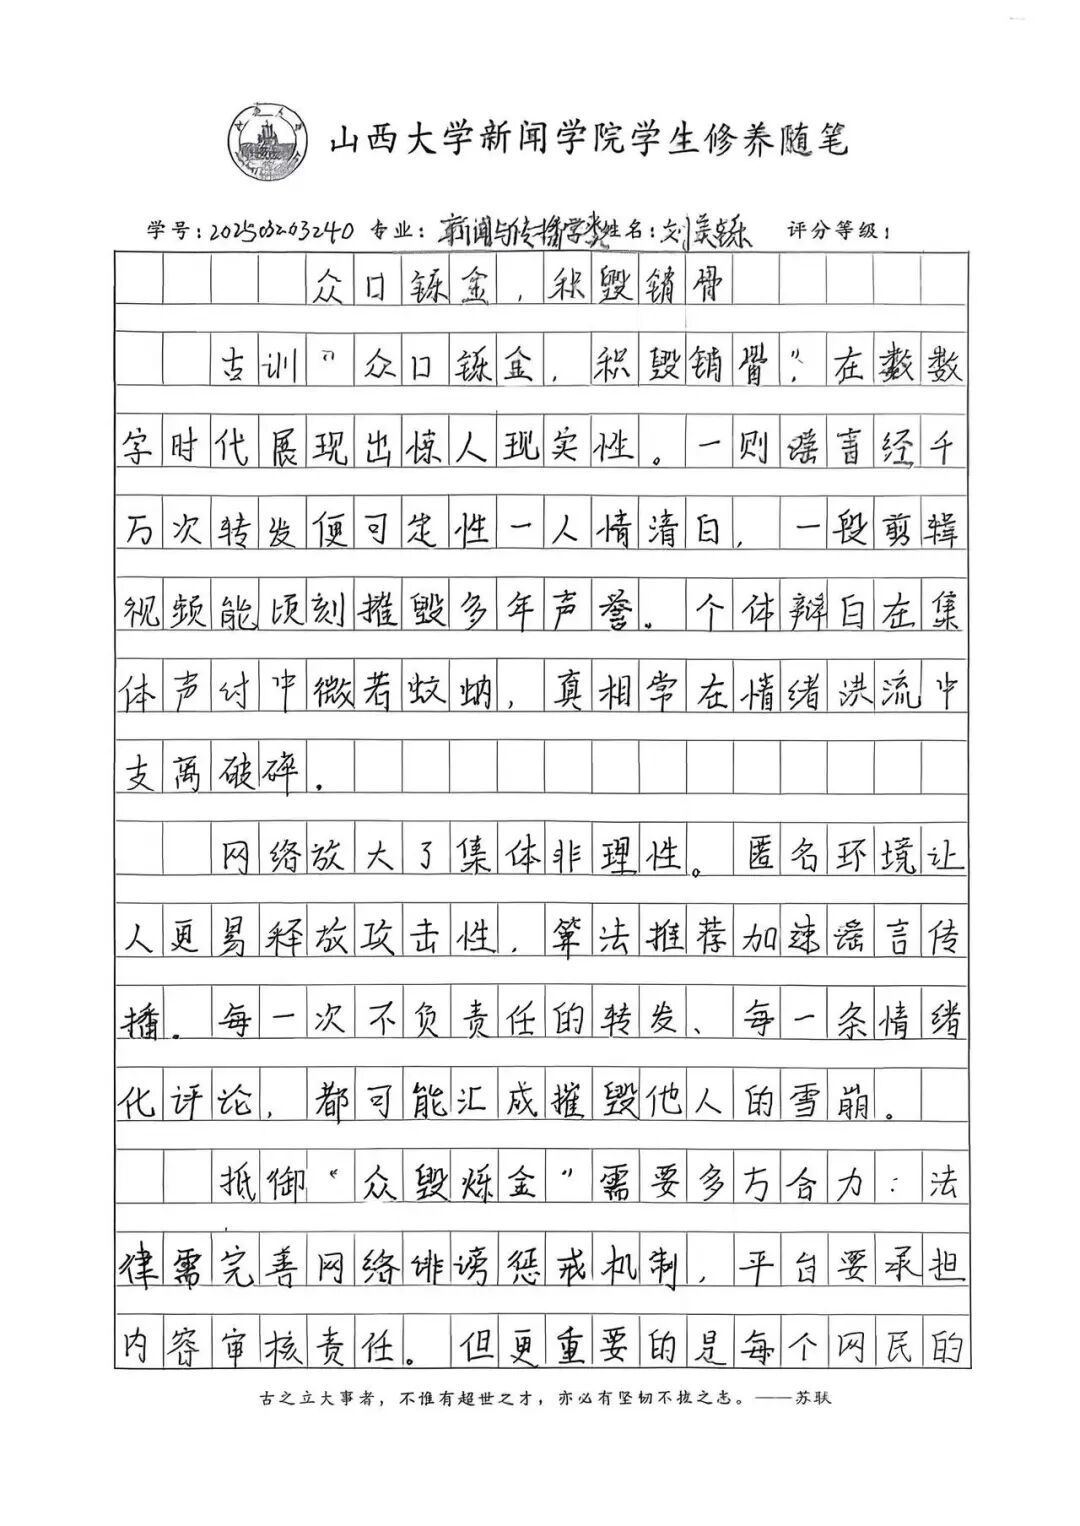 山西大学新闻学院学生修养随笔
学号：202503203240 专业：新闻与传播学类 姓名：刘奕乐 评分等级：
众口铄金，积毁销骨
古训“众口铄金，积毁销骨”，在数数
字时代展现出惊人现实性。一则谣言经千
万次转发便可定性一人情清白，一段剪辑
视频能顷刻摧毁多年声誉。个体辩白在集
体声讨中微若蚊蚋，真相常在情绪洪流中
支离破碎．
网络放大了集体非理性。匿名环境让
人更易释放攻击性，算法推荐加速谣言传
播．每一次不负责任的转发、每一条情绪
化评论，都可能汇成摧毁他人的雪崩。
抵御“众毁烁金”需要多方合力：法
律需完善网络诽谤惩戒机制，平台要承担
内容审核责任。但更重要的是每个网民的
古之立大事者，不谁有超世之才，亦必有坚韧不拔之志。——苏轼